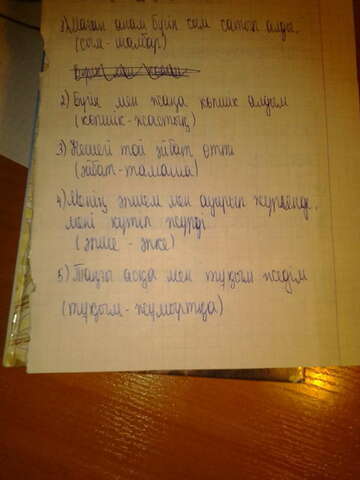 1) Маған анам бүгін сым сатып алды.
(сым - шалбар)
2) Бүгін мен жаңа көпшік алдым
(көпшік - жастық)
3) Кешегі той әйбат өтті
(әйбат - тамаша)
4) Менің әпшем мен ауырып жүргенде,
мені күтіп жүрді
(әпше - әпке)
5) Таңғы асқа мен тұқым жедім
(тұқым - жұмыртқа)